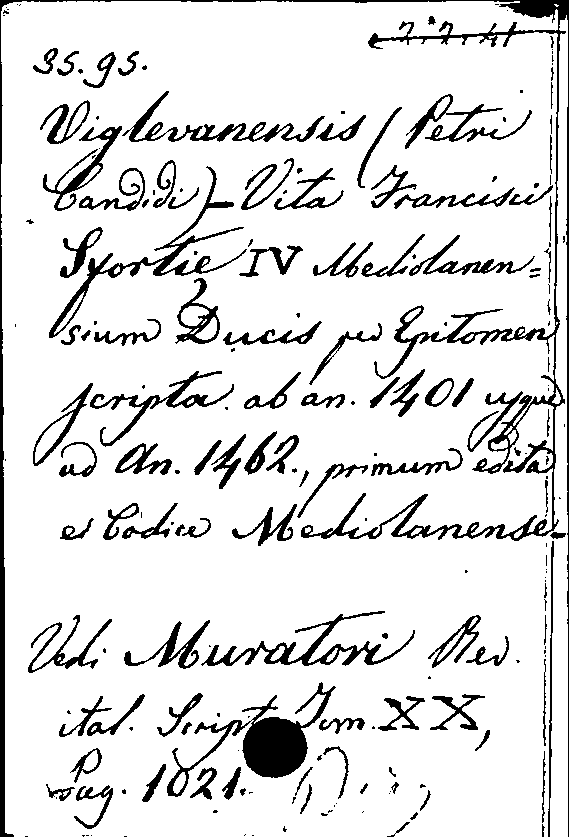 2.2.41
35.95.
Viglevanensis (Petri
Candidi) – Vita Francisci
Sfortie IV Mediolanen=
sium Ducis per Epitomen
scripta. ab an. 1401 usque
ad An. 1462., primum edita
ex Codice Mediolanense-
Vedi Muratori Rer.
ital. Script. Tom. XX,
Pag. 1021.